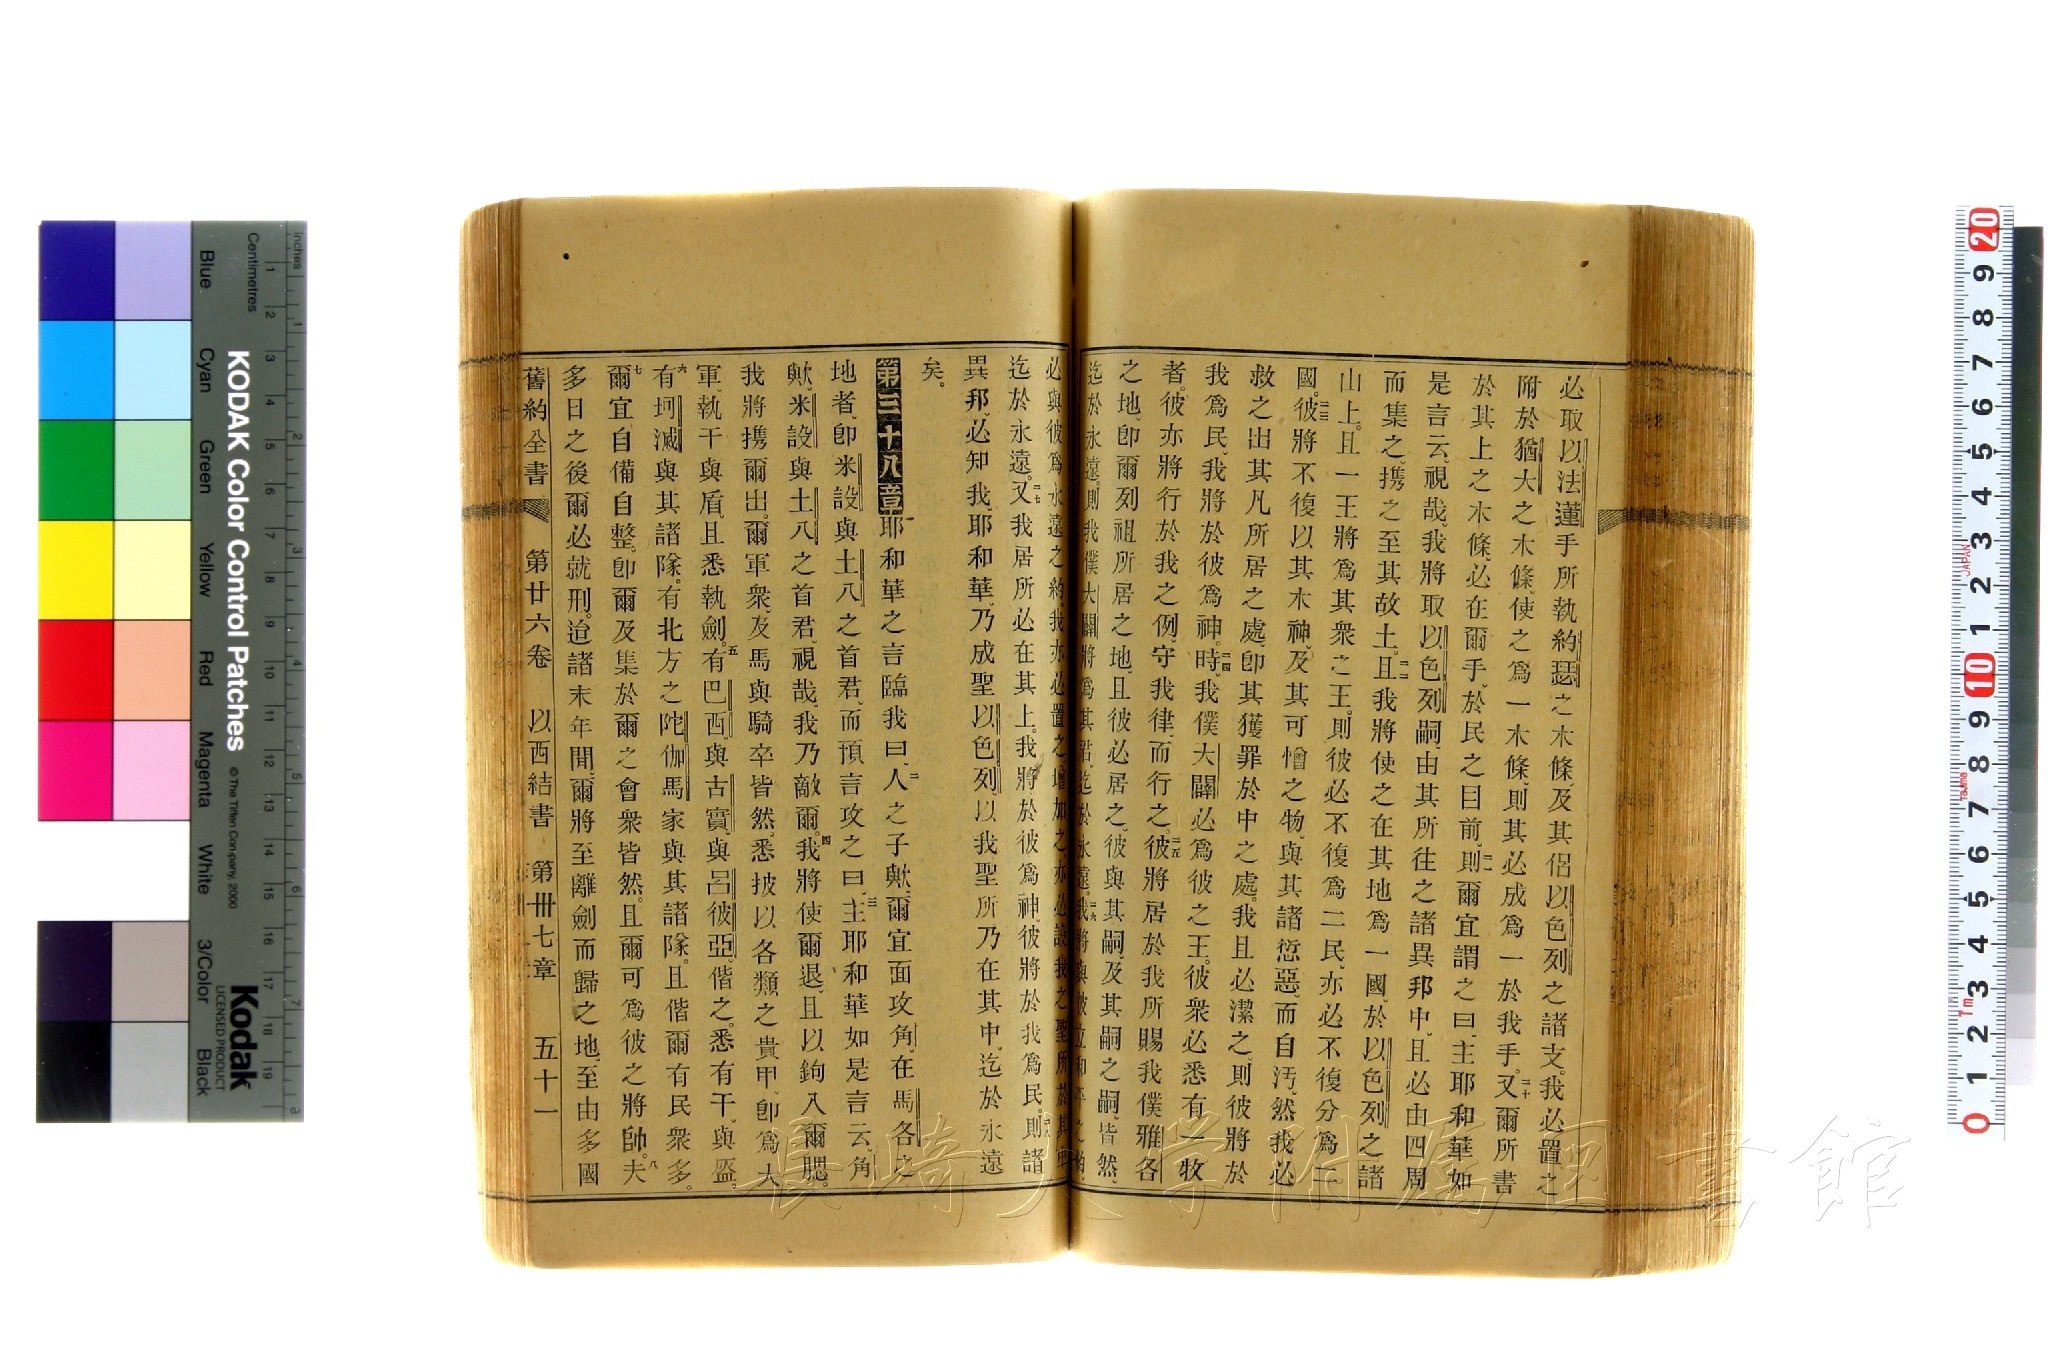 必取以法蓮手所執約瑟之木條、及其侶以色列之諸支。我必置之
附於猶大之木條、使之爲一木條、則其必成爲一於我手。二十又爾所書
於其上之木條、必在爾手、於民之目前、二一則爾宜謂之曰、主耶和華如
是言云、視哉、我將取以色列嗣、由其所往之諸異邦中、且必由四周
而集之、携之至其故土。二二且我將使之在其地爲一國、於以色列之諸
山上。且一王將爲其衆之王。則彼必不復爲二民、亦必不復分爲二
國。二三彼將不復以其木神、及其可憎之物、與其諸愆惡、而自汚、然我必
救之出其凡所居之處、卽其獲罪於中之處。我且必潔之、則彼將於
我爲民、我將於彼爲神。二四時、我僕大闢必爲彼之王。彼衆必悉有一牧
者。彼亦將行於我之例、守我律、而行之。二五彼將居於我所賜我僕雅各
之地、卽爾列祖所居之地、且彼必居之、彼與其嗣、及其嗣之嗣、皆然、
迄於永遠。則我僕大闢將爲其君、迄於永遠。二六我將與彼立和平之約、
必與彼爲永遠之約。我亦必置之、增加之、亦必設我之聖所於其中、
迄於永遠。二七又我居所必在其上。我將於彼爲神、彼將於我爲民、二八則諸
異邦必知我耶和華、乃成聖以色列、以我聖所乃在其中、迄於永遠
矣。
第三十八章一耶和華之言臨我曰、二人之子歟、爾宜面攻角、在馬各之
地者、卽米設與土八之首君、而預言攻之曰、三主耶和華如是言云、角
歟、米設與土八之首君、視哉、我乃敵爾。四我將使爾退、且以鉤入爾腮。
我將携爾出。爾軍衆、及馬與騎卒皆然、悉披以各類之貴甲、卽爲大
軍、執干與盾、且悉執劍。五有巴西、與古實、與呂彼亞、偕之。悉有干、與盔。
六有坷滅與其諸隊。有北方之陀伽馬家與其諸隊。且偕爾有民衆多。
七爾宜自備自整。卽爾及集於爾之會衆皆然。且爾可爲彼之將帥。八夫
多日之後、爾必就刑。迨諸末年間、爾將至離劍而歸之地、至由多國
舊約全書 第廿六卷 以西結書 第卅七章 五十一
Inches
Centimetres
Blue Cyan Green Yellow Red Magenta White 3/Color Black
KODAK Color Control Patches
© The Tiffen Company, 2000
Kodak
LICENSED PRODUCT
長崎大學附属図書館
JAPAN
Tajima